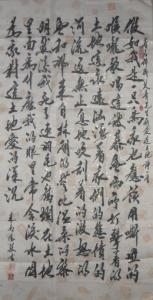 假如我是一只鸟我也应该用嘶哑的
喉咙歌唱这被暴风雨所打击着的
土地这永远汹涌着我们的悲愤的
河流这无止息地吹刮着的激怒的
风和那来自林间的无比温柔的黎
明然后我死了连羽毛也腐烂在土地
里面为什么我的眼里常含泪水因
为我对这土地爱得深沉